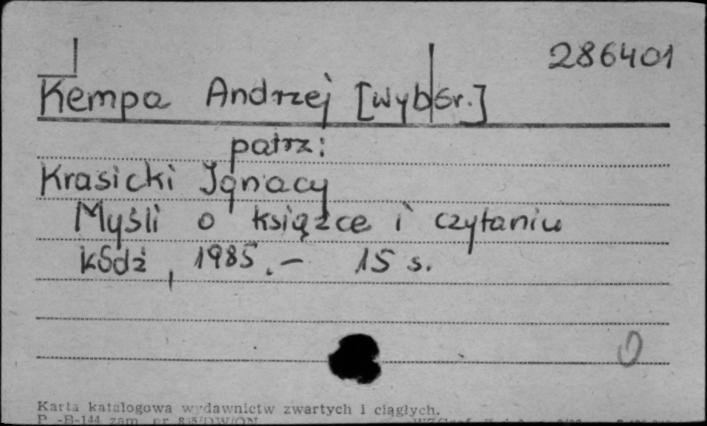 286401
Kempa Andrzej [Wybór.]
patrz:
Krasicki Ignacy
Myśli o książce i czytaniu
Łódź, 1985.- 15 s.
Karta katalogowa wydawnictw zwartych i ciągłych.
P.-B-144 zam. nr